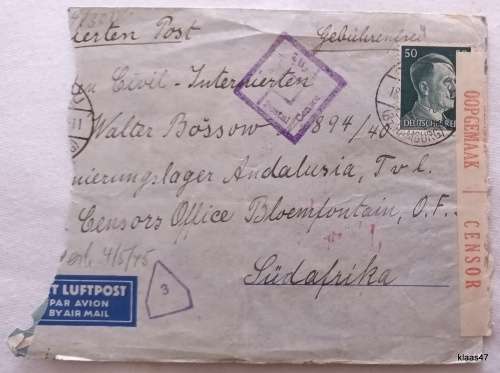 ierten Post
Gebührenfrei
50
DEUTSCHES REICH
HAMBURG
Postal Censor
Civil-Internierten
Walter Bossow 894/40
nierungslager Andalusia, Tvl.
Censors Office Bloemfontein, O.F.S
4/5/45
Südafrika
T LUFTPOST
PAR AVION
BY AIR MAIL
3
OOPGEMAAK | CENSOR
klaas47